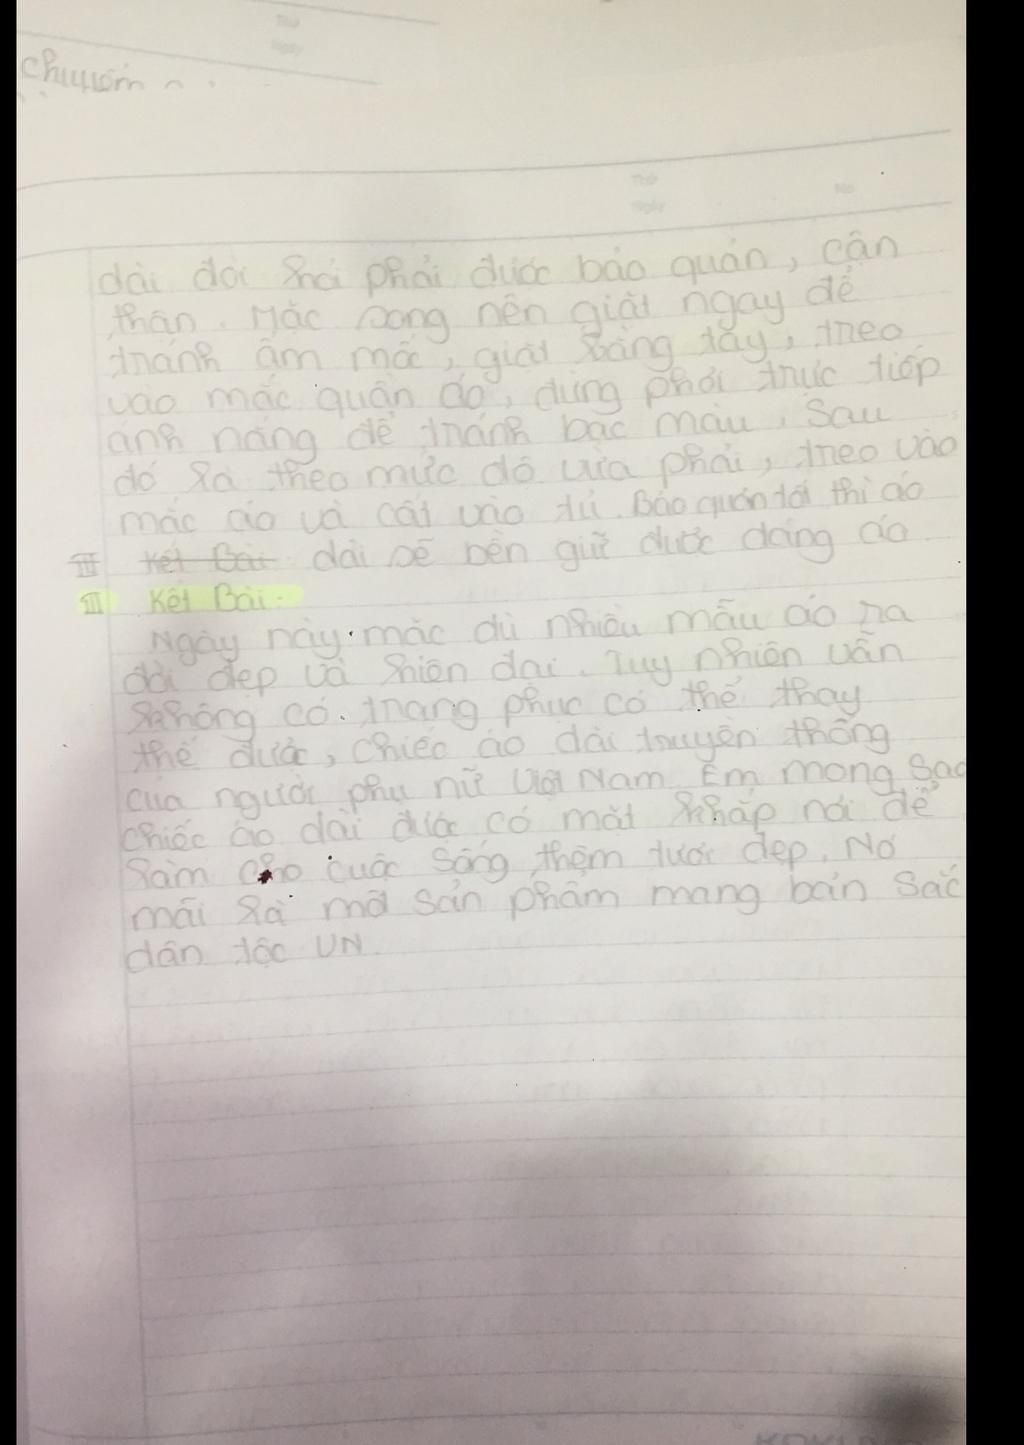 Thứ
Ngày
chuyến
Thứ
Ngày
No
dài đòi hỏi phải được bảo quản, cẩn
thận. Mặc song nên giặt ngay để
tránh ẩm mốc, giặt bằng tay, treo
vào mắc quần áo, dừng phơi trực tiếp
ánh nắng để tránh bạc màu. Sau
đó là theo mức độ vừa phải, treo vào
mắc áo và cất vào tủ. Bảo quản tốt thì áo
III Kết Bài dài sẽ bền giữ được dáng áo.
III Kết Bài.
Ngày này mặc dù nhiều mẫu áo ra
đời đẹp và hiện đại. Tuy nhiên vẫn
không có. trang phục có thể thay
thế được, chiếc áo dài truyền thống
của người phụ nữ Việt Nam. Em mong sao
chiếc áo dài được có mặt khắp nơi để
làm cho cuộc sống thêm tươi đẹp. Nó
mãi là một sản phẩm mang bản sắc
dân tộc VN.